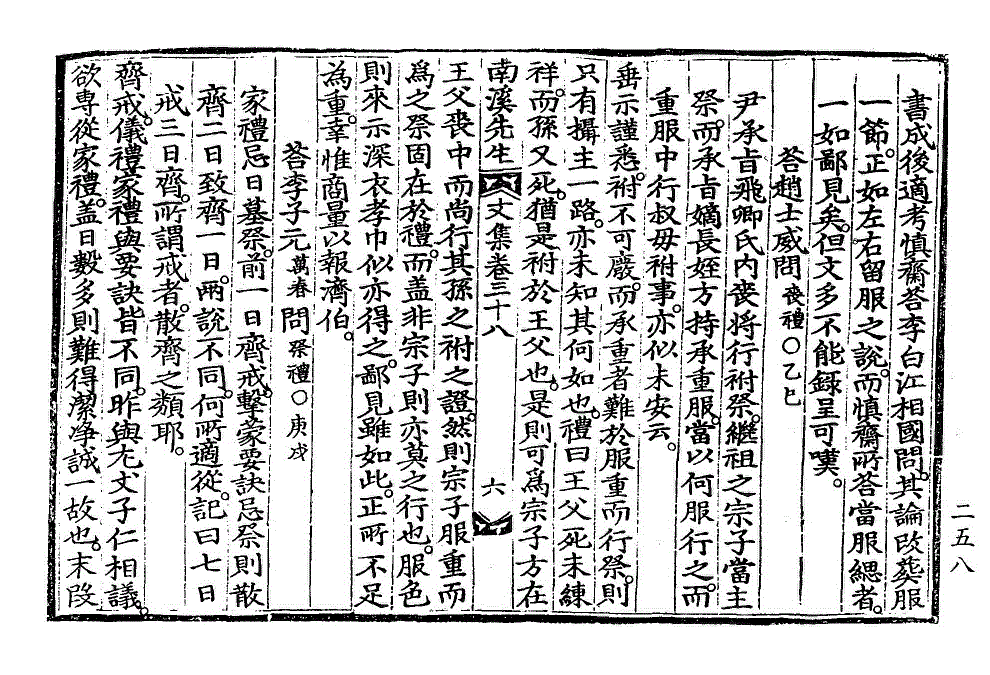 書成後適考愼齋答李白江相國問。其論改葬服
一節。正如左右留服之說。而愼齋所答當服緦者。
一如鄙見矣。但文多不能錄呈可嘆。
答趙士威問 喪禮○乙巳
尹承旨飛卿氏內喪將行祔祭。繼祖之宗子當主
祭。而承旨嫡長姪方持承重服。當以何服行之。而
重服中行叔母祔事。亦似未安云。
垂示謹悉。祔不可廢。而承重者難於服重而行祭。則
只有攝主一路。亦未知其何如也。禮曰王父死未練
祥。而孫又死。猶是祔於王父也。是則可爲宗子方在
南溪先生文集卷三十八 六
王父喪中而尙行其孫之祔之證。然則宗子服重而
爲之祭固在於禮。而盖非宗子則亦莫之行也。服色
則來示深衣孝巾似亦得之。鄙見雖如此。正所不足
為重。幸惟商量以報濟伯。
答李子元 萬春 問 祭禮○庚戌
家禮忌日墓祭。前一日齊戒。擊蒙要訣忌祭則散
齊二日致齊一日。兩說不同。何所適從。記曰七日
戒三日齊。所謂戒者。散齊之類耶。
齊戒。儀禮家禮與要訣皆不同。昨與尤丈子仁相議。
欲專從家禮。盖日數多則難得潔净誠一故也。末段
二五八